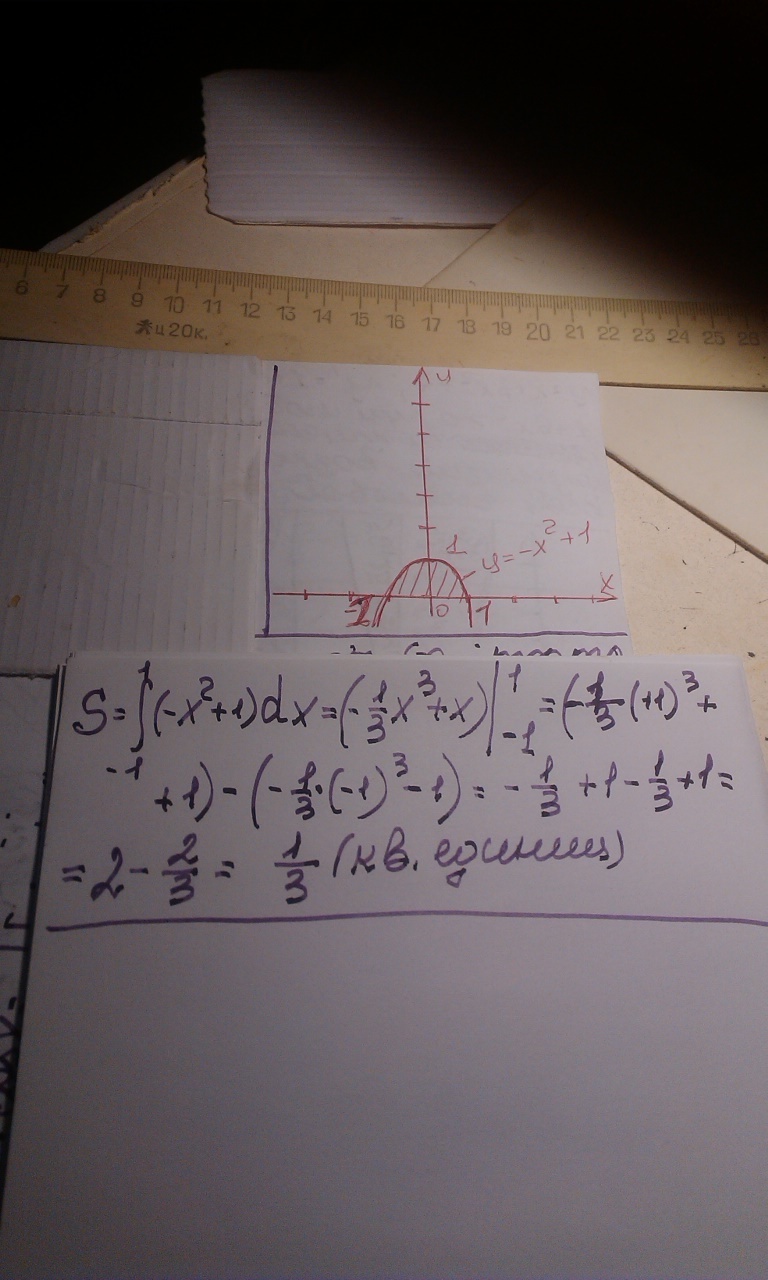 6 7 8 9 10 11 12 13 14 15 16 17 18 19 20 21 22 23 24 25 26
ц 20к.
y
1
y=-x²+1
x
0
1
S=∫₋₁¹(-x²+1)dx=(-1/3x³+x)|₋₁¹=(-1/3(+1)³+
+1)-(-1/3·(-1)³-1)=-1/3+1-1/3+1=
=2-2/3= 1/3 (кв. единиц)